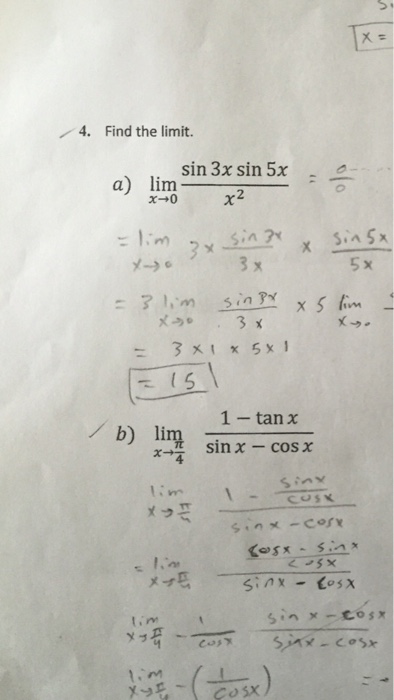 x =
4. Find the limit.
a) lim x→0 sin 3x sin 5x / x² = 0/0
= lim x→0 3 × sin 3x / 3x × sin 5x / 5x
= 3 lim x→0 sin 3x / 3x × 5 lim x→0
= 3 × 1 × 5 × 1
= 15
b) lim x→π/4 1 − tan x / sin x − cos x
lim x→π/4 1 - sinx / cosx / sinx - cosx
= lim x→π/4 cosx - sinx / cosx / sinx - cosx
lim x→π/4 - 1 / cosx sinx - cosx / sinx - cosx
lim x→π/4 - ( 1 / cosx ) =